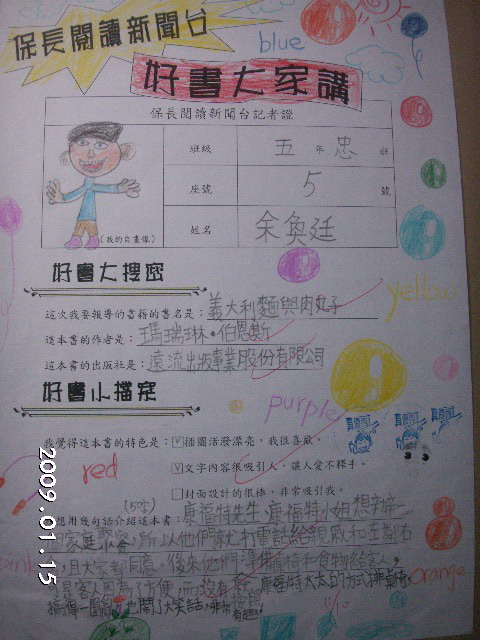 保長閱讀新聞台
blue
好書大家講
保長閱讀新聞台記者證
班級 五 年 忠 班
座號 5 號
姓名 余奐廷
(我的自畫像)
好書大搜密
這次我要報導的書籍的書名是：義大利麵與肉丸子
這本書的作者是：瑪瑞琳·伯恩斯
這本書的出版社是：遠流出版事業股份有限公司
yellow
好書小檔案
purple
我覺得這本書的特色是：V插圖活潑漂亮，我很喜歡。
V文字內容很吸引人，讓人愛不釋手。
□封面設計的很棒，非常吸引我。
red
想用幾句話介紹這本書：康福特先生、康福特小姐想辦一
家庭聚會，所以他們就打電話給親戚和左鄰右
，且大家都同意。後來他們準備
和食物給客人，
客人因為了方便，而沒有
康福特太太的方式排桌椅，
也鬧了大笑話，非常有趣
orange
2009.01.15